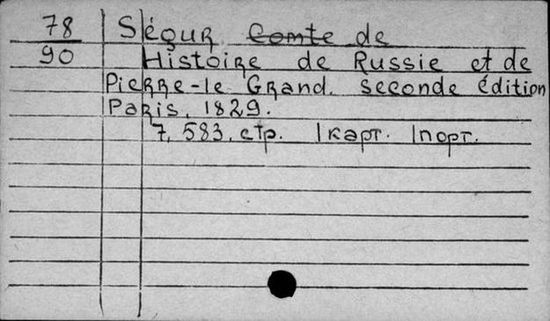 78 Ségur ~~Comte~~ de
90 Histoire de Russie et de
Pierre-le Grand. seconde édition
Paris, 1829.
7, 583, стр. 1 карт. 1 порт.